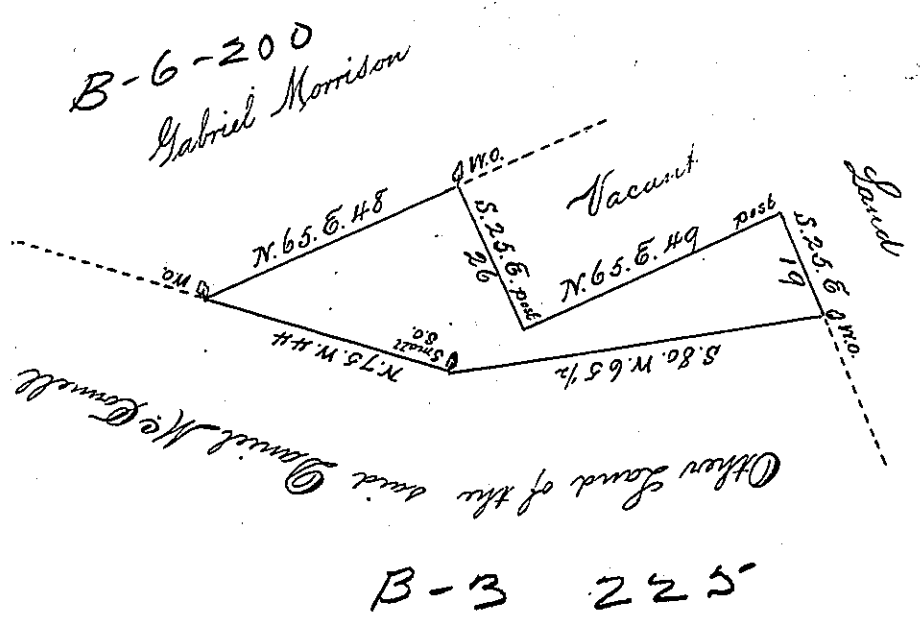 B-6-200
Gabriel Morrison
W.O.
Vacant
Land
N.65.E.48
S.25.E.
26
post
N.65.E.49
post
S.25.E
19
W.O.
W.O.
N.75.W.44
Small
S.O.
S.80.W.65½
Other Land of the said Daniel McConnell
B-3 225